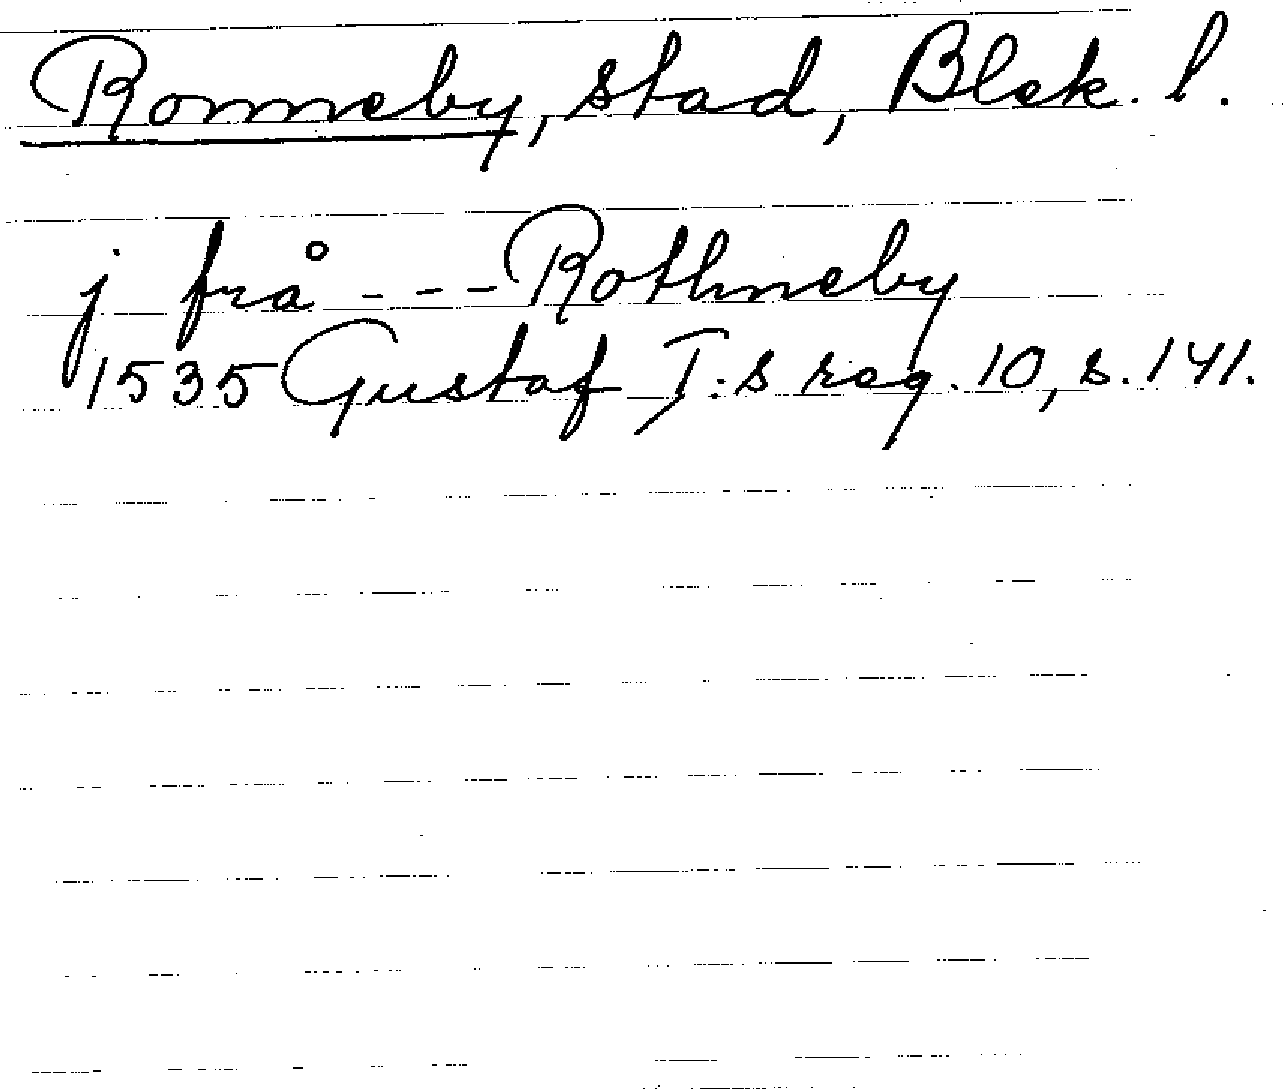 Ronneby, stad, Blek. l.
j frå - - - Rothneby
1535 Gustaf I:s reg. 10, s. 141.